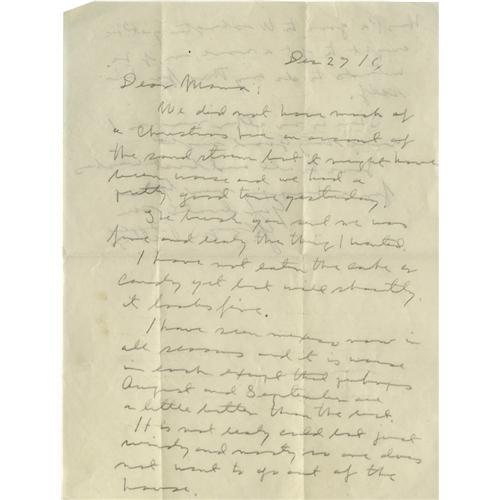 Dec 27/16
Dear Mama:
We did not have much of
a Christmas here on account of
the sand storm but it might have
been worse and we had a
pretty good time yesterday.
The brush you sent me was
fine and really the thing I wanted.
I have not eaten the cake or
candy yet but will shortly.
it looks fine.
I have seen mexico now in
all seasons and it is worse
in each except that perhaps
August and September are
a little better than the rest.
It is not really cold but just
windy and nasty so one does
not want to go out of the
house.